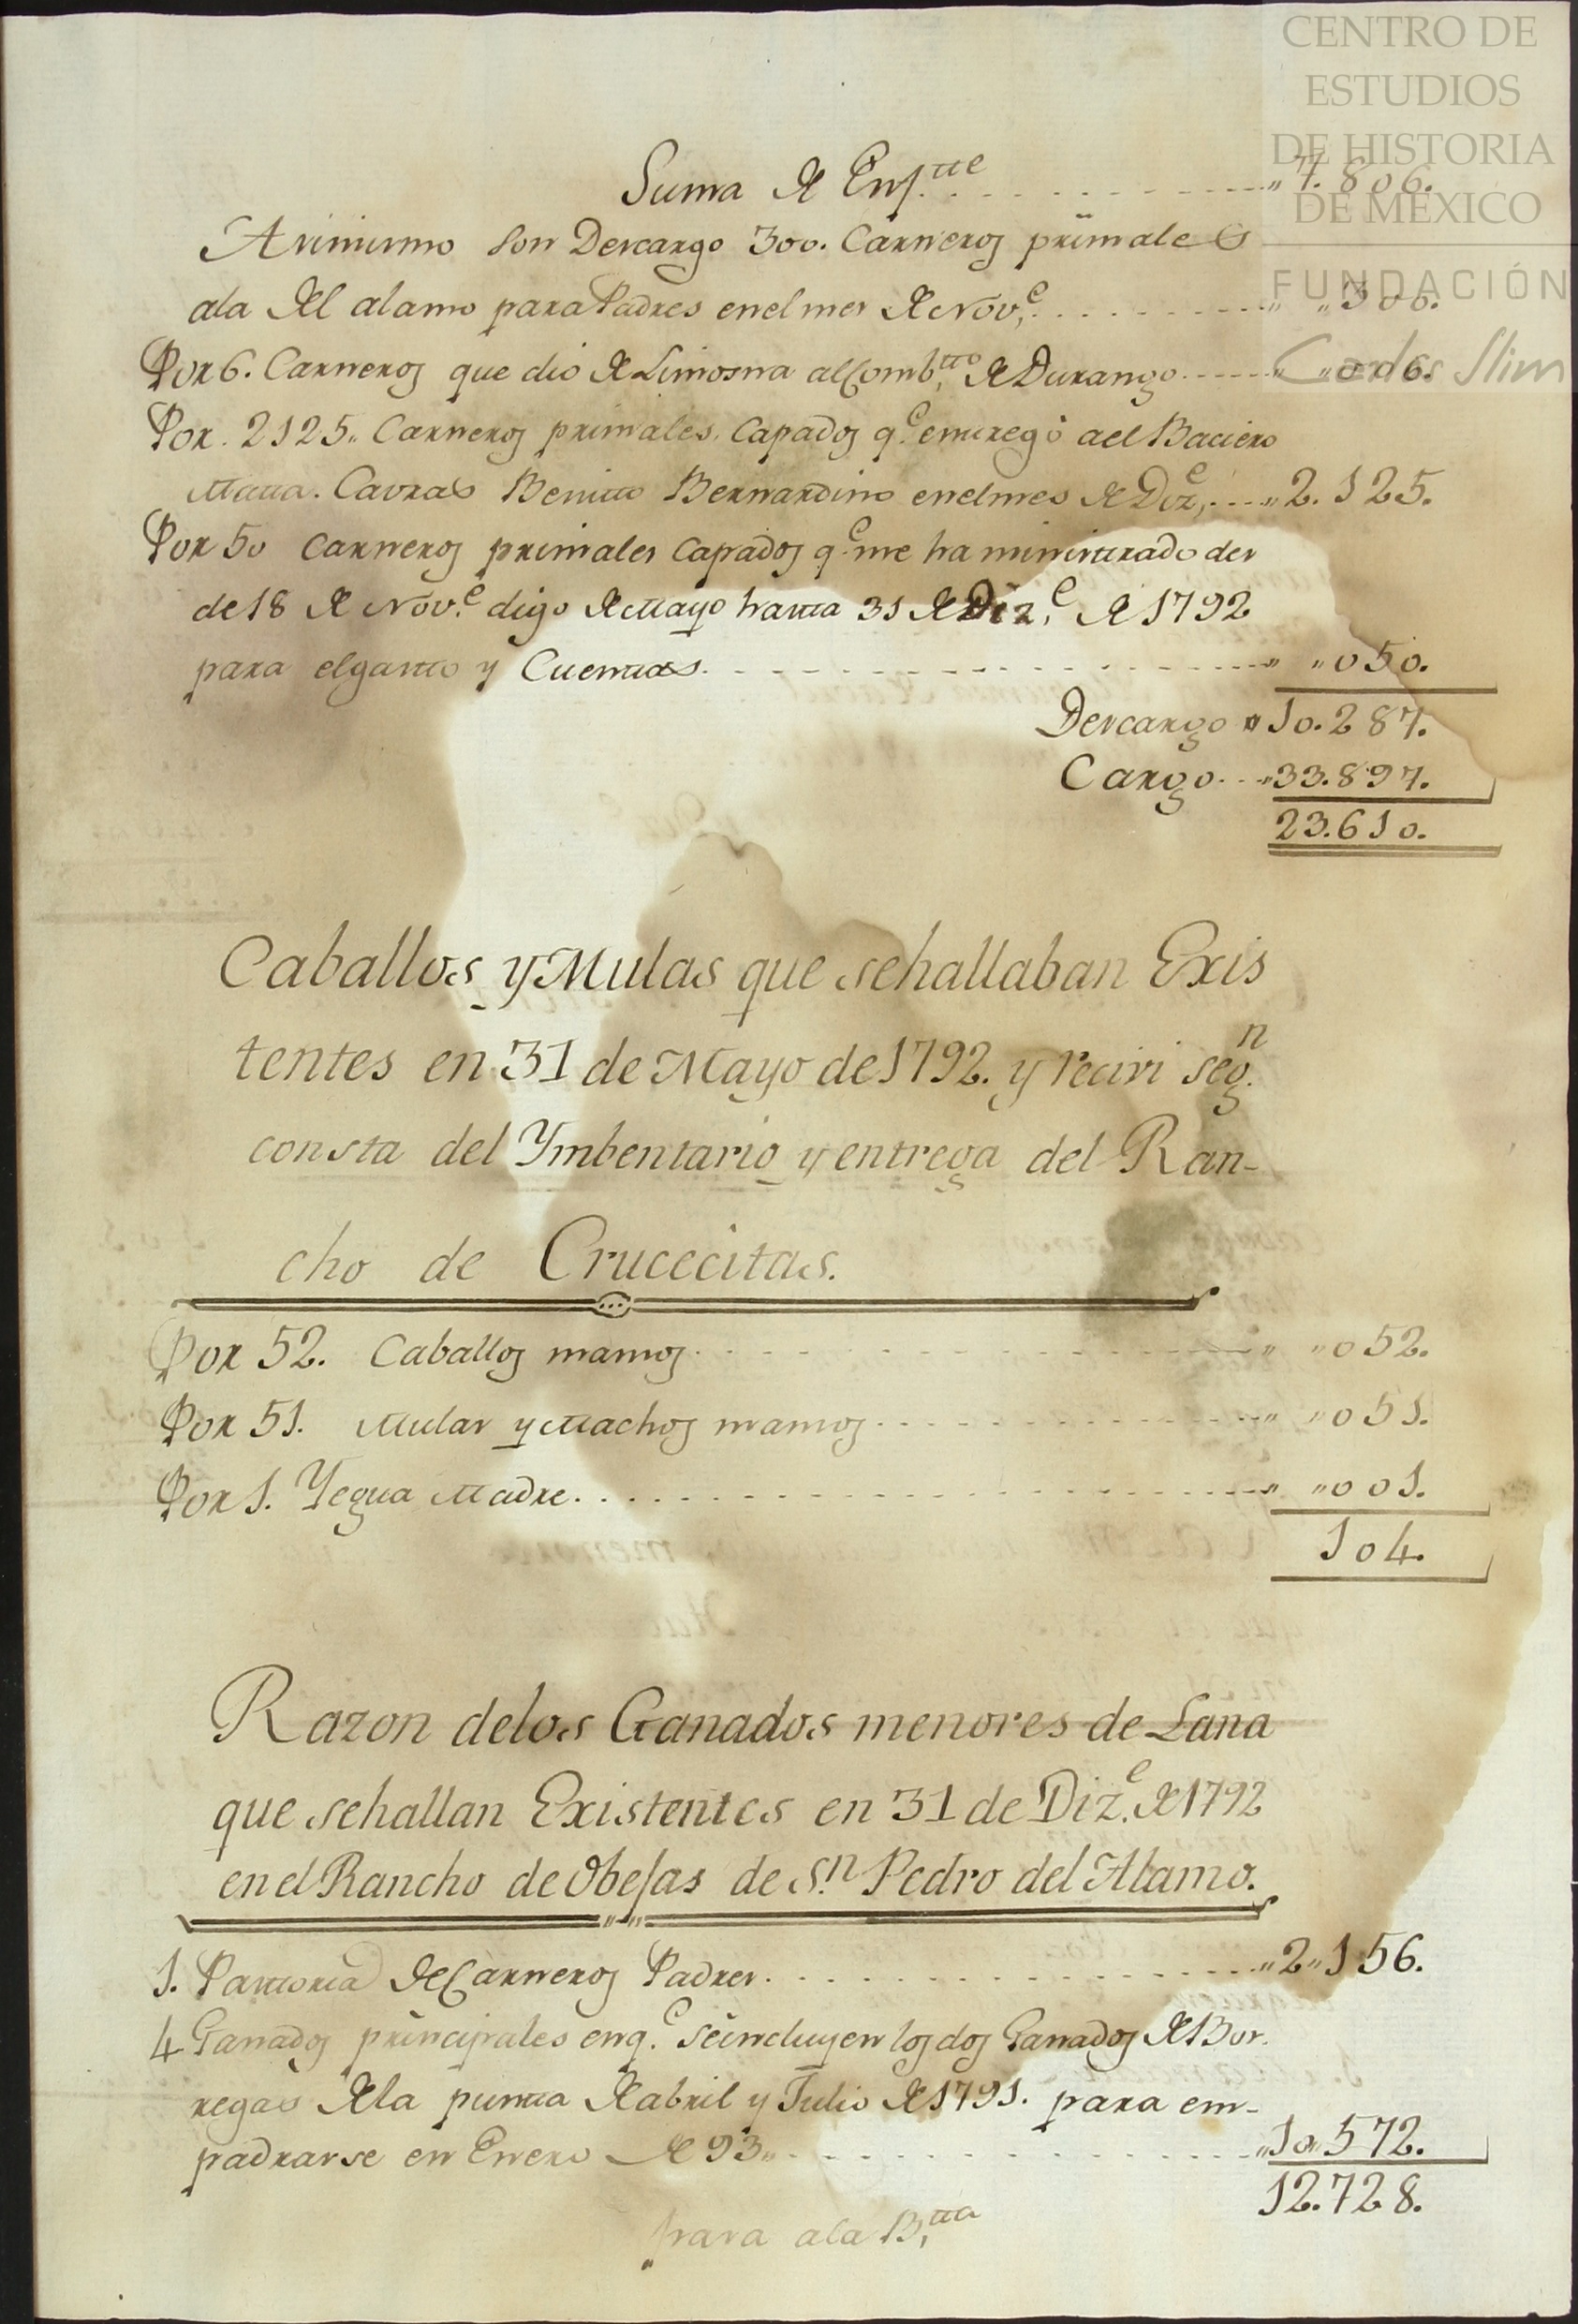 CENTRO DE
ESTUDIOS
DE HISTORIA
DE MÉXICO
FUNDACIÓN
Carlos Slim
Suma de Enf.tte " 7.806.
Asimismo son Descargo 300. Carneros primales
ala del alamo para Padres enel mes de Nov.e " "300.
Por 6. Carneros que dio de Limosna al Comb.tto de Durango " "006.
Por. 2125" Carneros primales, Capados q.e entregó ael Baciero
Matta. Cavras Benitto Bernardino enelmes de Diz.e "2.125.
Por 50 Carneros primales Capados q.e me ha ministrado des
de 18 de Nov.e digo de Mayo hasta 31 de Diz.e de 1792
para elgasto y Cuentas " "050.
Descargo " 10.287.
Cargo "33.897.
23.610.
Caballos y Mulas que sehallaban Exis
tentes en 31 de Mayo de 1792. y recivi seg.n
consta del Ymbentario y entrega del Ran-
cho de Crucecitas.
Por 52. Caballos mansos " "052.
Por 51. Mulas y Machos mansos " "051.
Por 1. Yegua Madre " "001.
104.
Razon delos Ganados menores de Lana
que sehallan Existentes en 31 de Diz.e de 1792
en el Rancho de Obejas de S.n Pedro del Alamo.
1. Pastoria de Carneros Padres "2"156.
4 Ganados principales enq.e seincluyen los dos Ganados de Bor.
regas dela punta de abril y Julio de 1791. para em-
padrarse en Enero de 93" "10"572.
12.728.
pasa ala B.tta